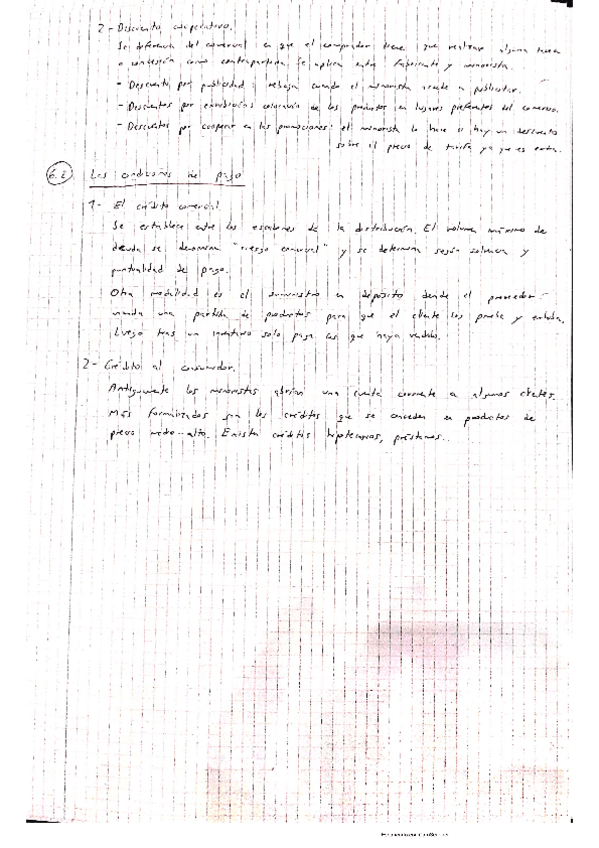 2- Descuento cooperativo.
Se diferencia del comercial en que el comprador tiene que realizar alguna tarea
o concesión como contrapartida. Se aplica entre fabricante y minorista.
- Descuento por publicidad: rebaja cuando el minorista ayuda a publicitar.
- Descuentos por colocación de los productos en lugares preferentes del comercio.
- Descuentos por cooperar en las promociones: el minorista lo hace si hay un descuento
sobre el precio de tarifa ya que es
6.2 Las condiciones de pago
1- El crédito comercial.
Se establece entre los escalones de la distribución. El volumen máximo de
deuda se denomina "riesgo comercial" y se determina según solvencia y
puntualidad de pago.
Otra modalidad es el suministro en depósito donde el proveedor
manda una partida de productos para que el cliente los pruebe y exhiba.
Luego tras un inventario solo paga los que haya vendido.
2- Crédito al consumidor.
Antiguamente los minoristas abrían una cuenta corriente a algunos clientes.
Más formalizados son los créditos que se conceden en productos de
precio medio-alto. Existen créditos hipotecarios, préstamos...